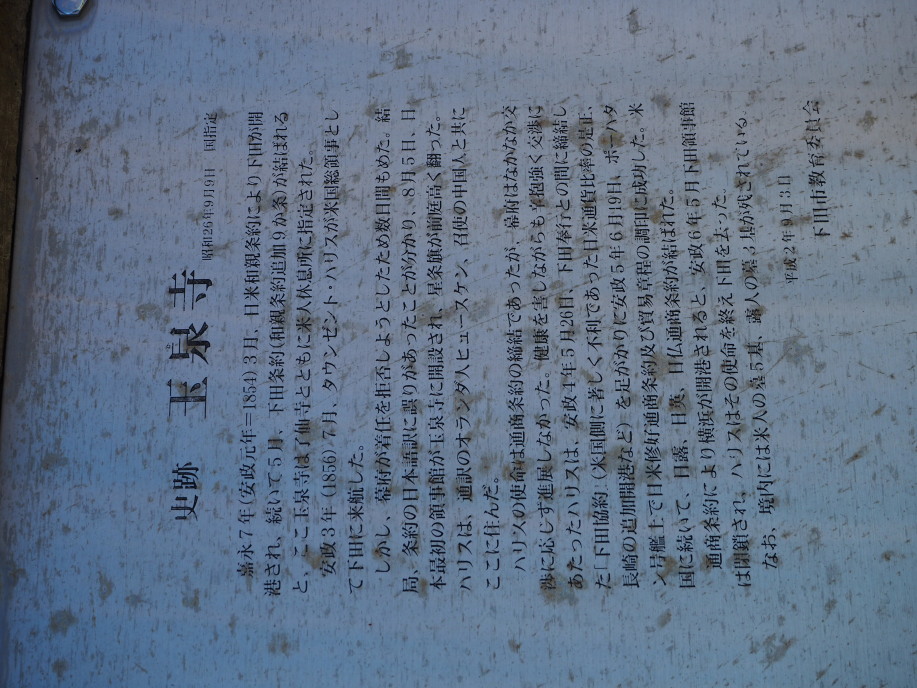 史跡 玉泉寺 昭和26年9月9日 国指定
嘉永7年(安政元年=1854)3月、日米和親条約により下田が開
港され、続いて5月、下田条約(和親条約追加9か条)が結ばれる
と、ここ玉泉寺は了仙寺とともに米人休息所に指定された。
安政3年(1856)7月、タウンゼント・ハリスが米国総領事とし
て下田に来航した。
しかし、幕府が着任を拒否しようとしたため数日間もめた。結
局、条約の日本語訳に誤りがあったことが分かり、8月5日、日
本最初の領事館が玉泉寺に開設され、星条旗が前庭高く翻った。
ハリスは、通訳のオランダ人ヒュースケン、召使の中国人と共に
ここに住んだ。
ハリスの使命は通商条約の締結であったが、幕府はなかなか交
渉に応じず進展しなかった。健康を害しながらも辛抱強く交渉に
あたったハリスは、安政4年5月26日、下田奉行との間に締結し
た「下田協約」(米国側に著しく不利であった日米通貨比率の是正、
長崎の追加開港など)を足がかりに安政5年6月19日、ポーハタ
ン号艦上で日米修好通商条約及び貿易章程の調印に成功した。米
国に続いて、日露、日英、日仏通商条約が結ばれた。
通商条約により横浜が開港されると、安政6年5月下田領事館
は閉鎖され、ハリスはその使命を終え下田を去った。
なお、境内には米人の墓5基、露人の墓3基が残されている。
平成2年9月3日
下田市教育委員会